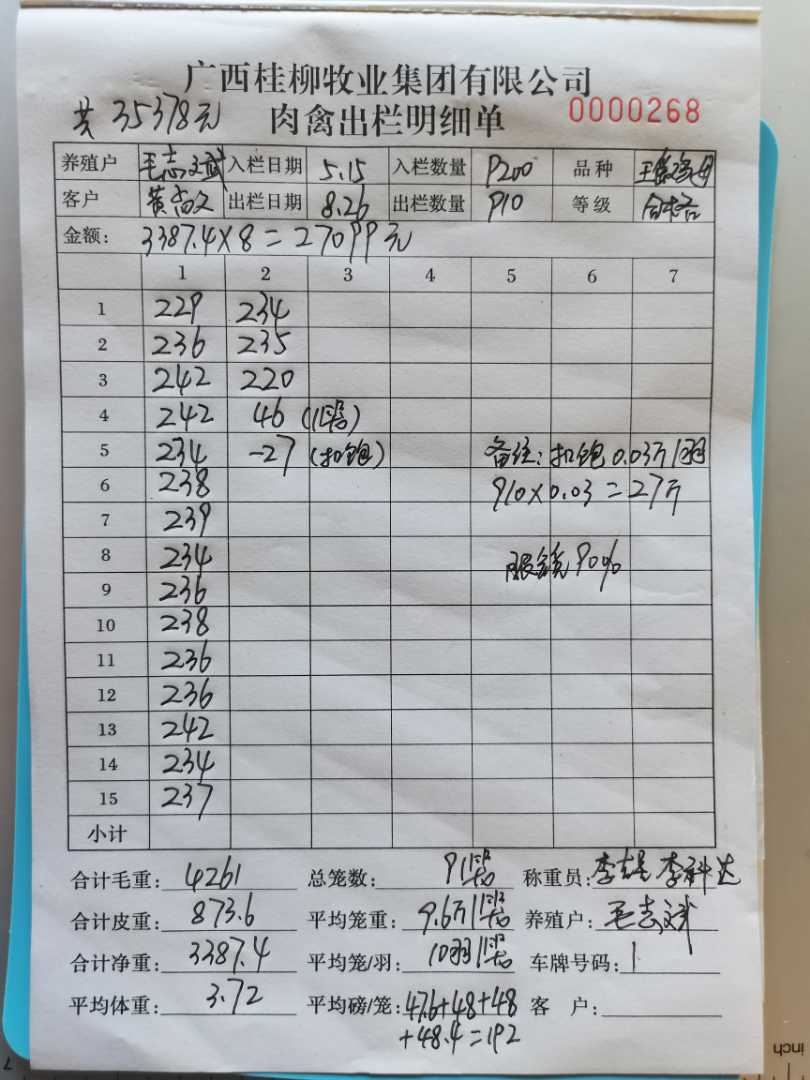 广西桂柳牧业集团有限公司
共 35378元 肉禽出栏明细单 0000268
养殖户 毛志斌 入栏日期 5.15 入栏数量 9200 品种
客户 黄尚文 出栏日期 8.26 出栏数量 910 等级 合格
金额: 3387.4×8=27099元
1 2 3 4 5 6 7
1 229 234
2 236 235
3 242 220
4 242 46 (1笼)
5 234 -27 (扣饱) 备注:扣饱0.03斤/羽
6 238 910×0.03=27斤
7 239
8 234 90%
9 236
10 238
11 236
12 236
13 242
14 234
15 237
小计
合计毛重: 4261 总笼数: 91笼 称重员: 李科达
合计皮重: 873.6 平均笼重: 9.6斤/笼 养殖户: 毛志斌
合计净重: 3387.4 平均笼/羽: 10羽/笼 车牌号码:
平均体重: 3.72 平均磅/笼: 47.6+48+48 客 户:
+48.4=192
inch
7